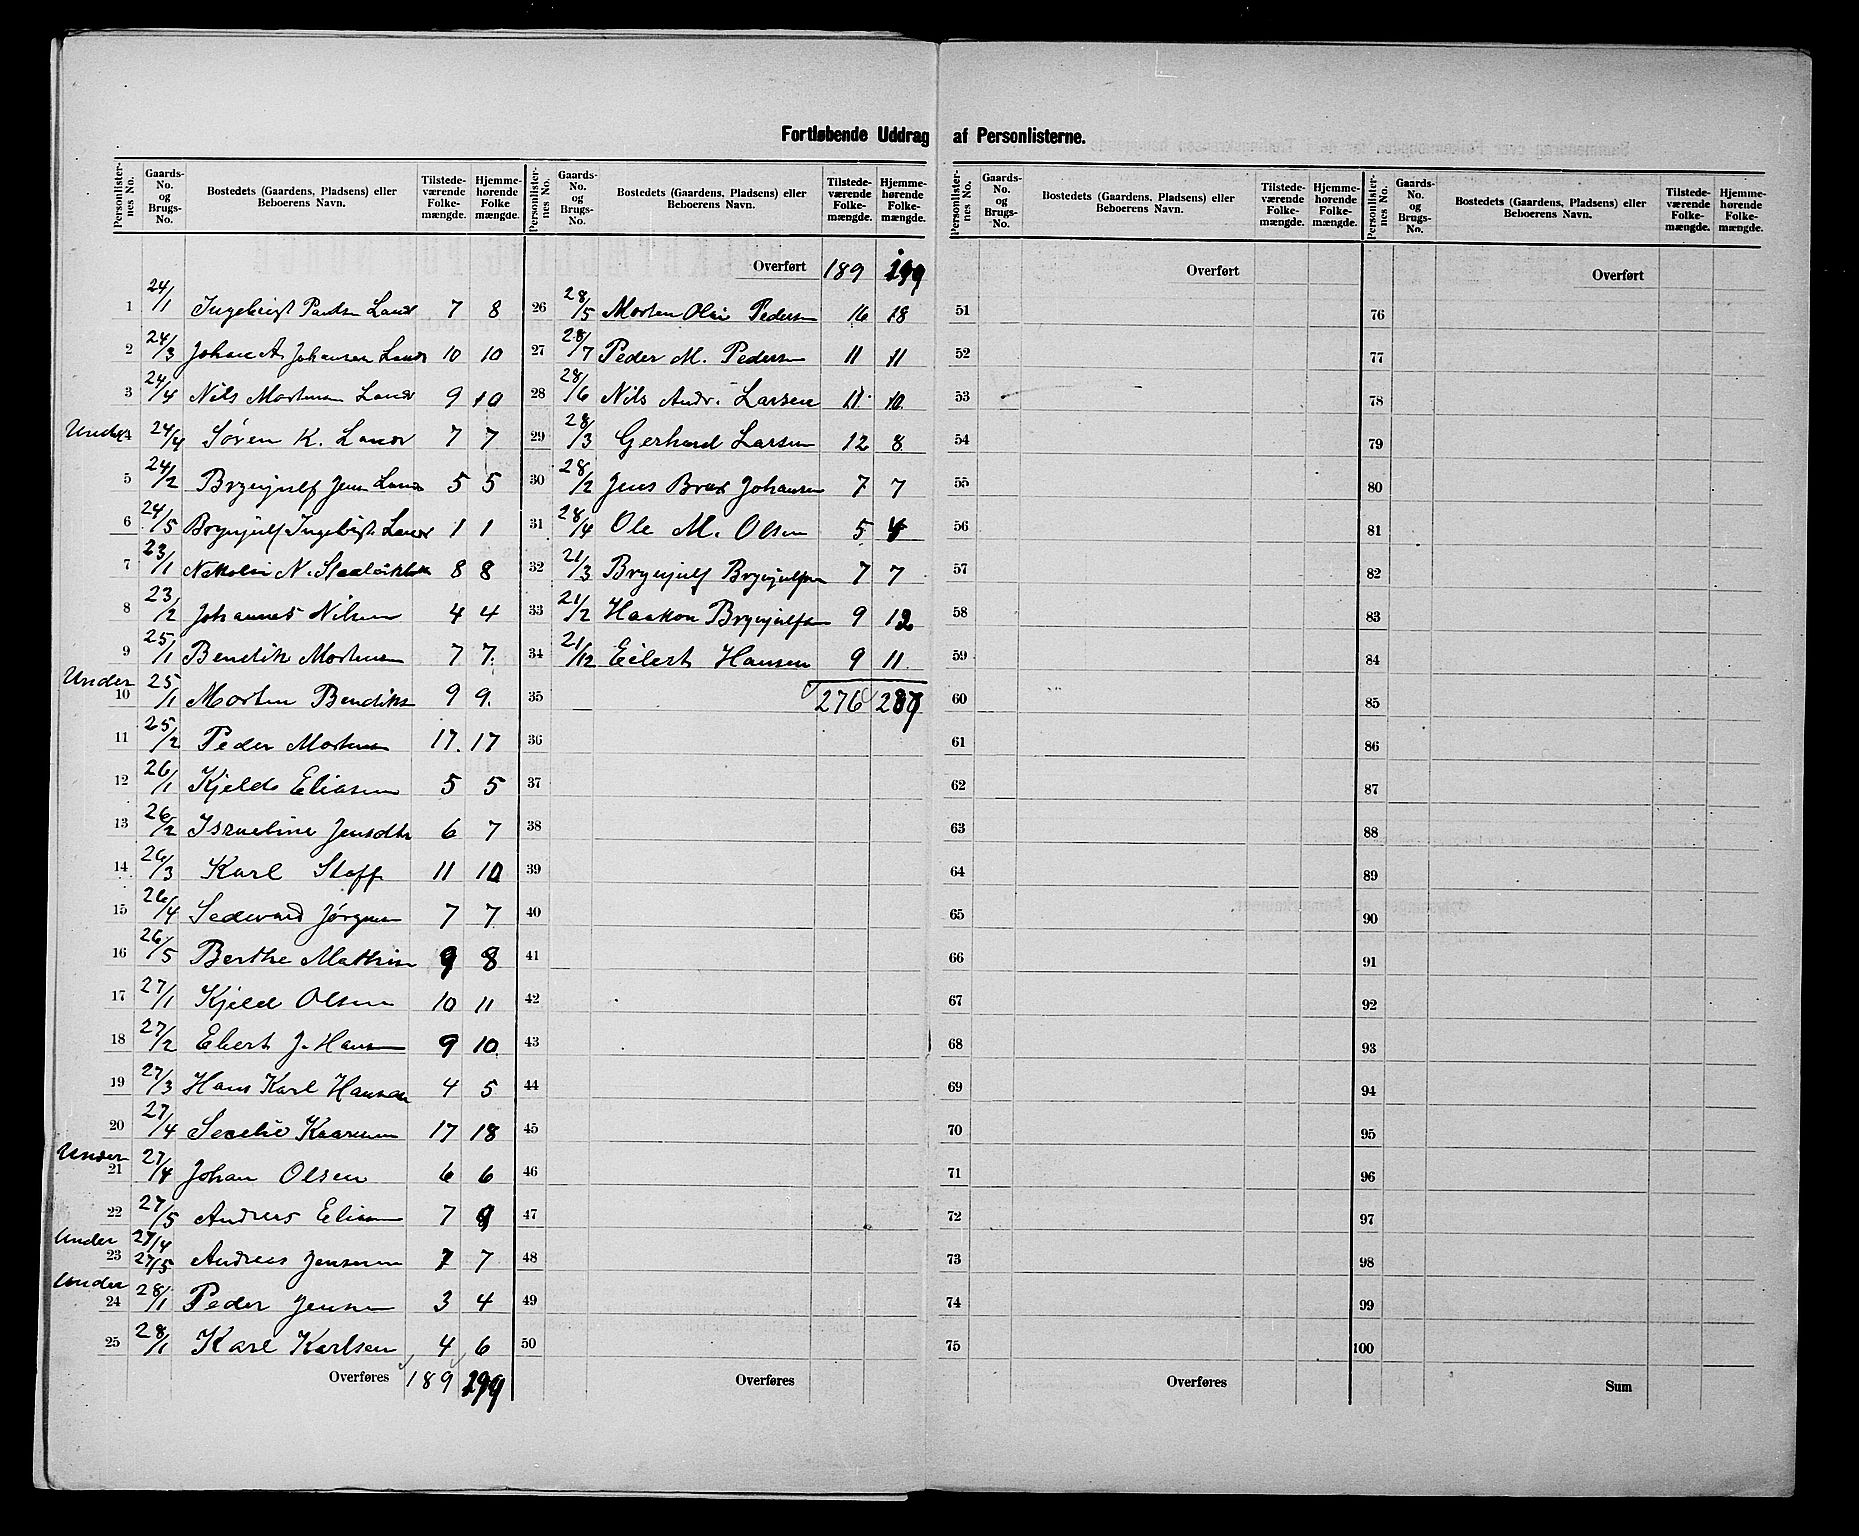 Fortløbende Uddrag af Personlisterne.
Personlister-nes No. Gaards-No. og Brugs-No. Bostedets (Gaardens, Pladsens) eller Beboerens Navn. Tilstede-værende Folke-mængde. Hjemme-hørende Folke mængde.
1 24/1 Ingebrigt Land 7 8
2 24/3 Johan A Johansen Land 10 10
3 24/4 Nils Mortensen Land 9 10
Under 4 24/4 Søren K. Land 7 7
5 24/2 Brynjulf Jens Land 5 5
6 24/5 Brynjulf Ingebrigt Land 1 1
7 23/1 Nikolai N. 8 8
8 23/2 Johannes Nilsen 4 4
9 25/1 Bendik Mortensen 7 7
Under 10 25/1 Morten Bendiks 9 9
11 25/2 Peder Mortensen 17 17
12 26/1 Kjeld Eliasen 5 5
13 26/2 Israeline Jensdtr 6 7
14 26/3 Karl Staff 11 10
15 26/4 Sedevard Jørgensen 7 7
16 26/5 Berthe Mathisen 9 8
17 27/1 Kjeld Olsen 10 11
18 27/2 Ebert J. Hansen 9 10
19 27/3 Hans Karl Hansen 4 5
20 27/4 Kaaresen 17 18
Under 21 27/4 Johan Olsen 6 6
22 27/5 Andreas Eliasen 7 9
Under 23 27/4 27/5 Andreas Jensen 7 7
Under 24 28/1 Peder Jensen 3 4
25 28/1 Karl Karlsen 4 6
Overføres 189 199
Personlister-nes No. Gaards-No. og Brugs-No. Bostedets (Gaardens, Pladsens) eller Beboerens Navn. Tilstede-værende Folke-mængde. Hjemme-hørende Folke-mængde.
Overført 189 199
26 28/5 Morten Olai Pedersen 16 18
27 28/7 Peder M. Pedersen 11 11
28 28/6 Nils Andr. Larsen 11 10
29 28/3 Gerhard Larsen 12 8
30 28/2 Jens Brox Johansen 7 7
31 28/4 Ole M. Olsen 5 4
32 21/3 Brynjulf Brynjulfsen 7 7
33 21/2 Haakon Brynjulfsen 9 12
34 21/12 Eilert Hansen 9 11
35 276 287
36
37
38
39
40
41
42
43
44
45
46
47
48
49
50
Overføres
Personlister-nes No. Gaards-No. og Brugs-No. Bostedets (Gaardens, Pladsens) eller Beboerens Navn. Tilstede-værende Folke-mængde. Hjemme-hørende Folke-mængde.
Overført
51
52
53
54
55
56
57
58
59
60
61
62
63
64
65
66
67
68
69
70
71
72
73
74
75
Overføres
Personlister-nes No. Gaards-No. og Brugs-No. Bostedets (Gaardens, Pladsens) eller Beboerens Navn. Tilstede-værende Folke-mængde. Hjemme-hørende Folke-mængde.
Overført
76
77
78
79
80
81
82
83
84
85
86
87
88
89
90
91
92
93
94
95
96
97
98
99
100
Sum